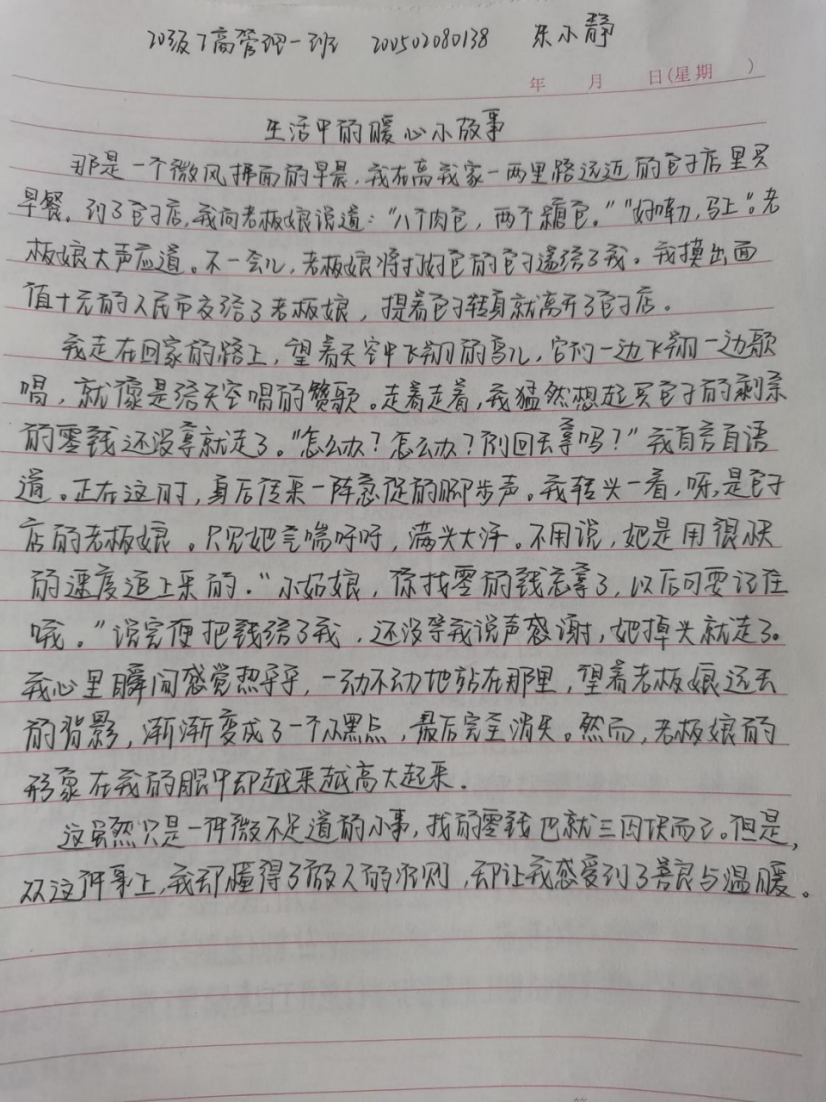 20级工商管理一班 200502080138 朱小静
年 月 日(星期 )
生活中的暖心小故事
那是一个微风拂面的早晨,我在离我家一两里路远近的包子店里买
早餐。到了包子店,我向老板娘说道:“八个肉包,两个糖包。”“好嘞,马上”。老
板娘大声应道。不一会儿,老板娘将打好包的包子递给了我。我摸出面
值十元的人民币交给了老板娘,提着包子转身就离开了包子店。
我走在回家的路上,望着天空中飞翔的鸟儿,它们一边飞翔一边歌
唱,就像是给天空唱的赞歌。走着走着,我猛然想起买包子的剩余
的零钱还没拿就走了。“怎么办?怎么办?倒回去拿吗?”我自言自语
道。正在这时,身后传来一阵急促的脚步声。我转头一看,呀,是包子
店的老板娘。只见她气喘呼呼,满头大汗。不用说,她是用很快
的速度追上来的。“小姑娘,你找零的钱忘拿了,以后可要记住
哦。”说完便把钱给了我,还没等我说声感谢,她掉头就走了。
我心里瞬间感觉热乎乎,一动不动地站在那里,望着老板娘远去
的背影,渐渐变成了一个小黑点,最后完全消失。然而,老板娘的
形象在我的眼中却越来越高大起来。
这虽然只是一件微不足道的小事,找的零钱也就三四块而已。但是,
从这件事上,我却懂得了做人的准则,却让我感受到了善良与温暖。